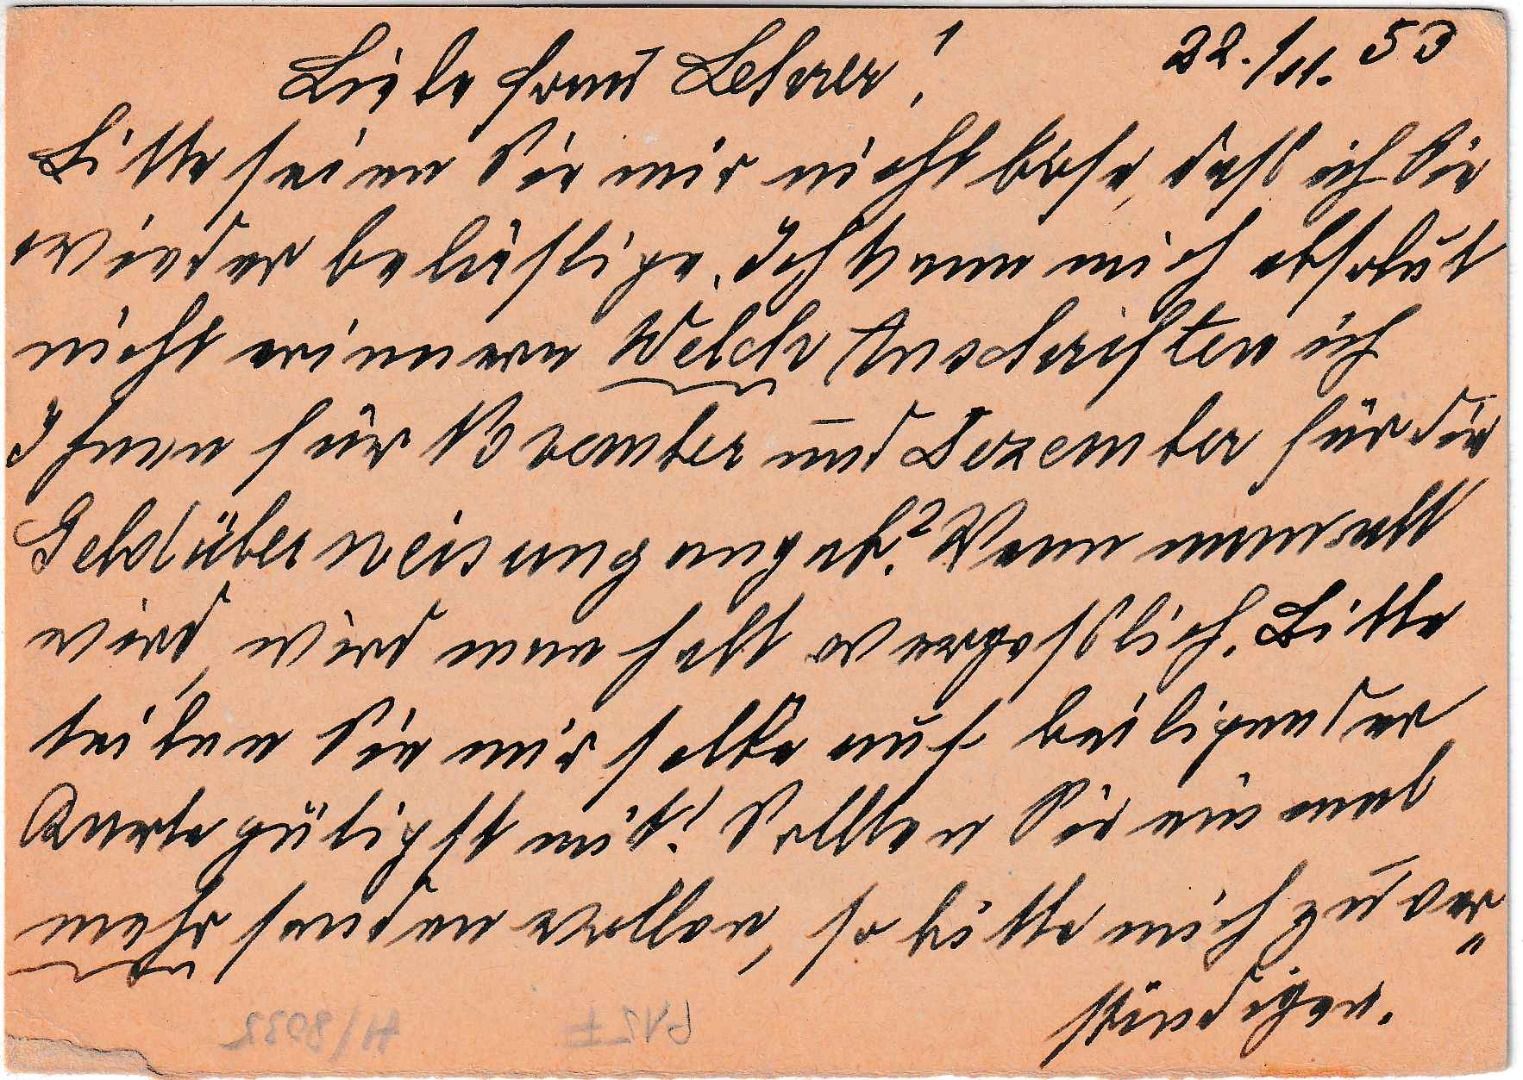 22./11. 53
Liebe Frau Lehrer!
Bitte seien Sie mir nicht böse, daß ich Sie
wieder belästige. Ich kann mich absolut
nicht erinnern Welch Anschriften ich
Ihnen für November und Dezember für die
Geldüberweisung angab? Wenn man alt
wird, wird man halt vergeßlich. Bitte
teilen Sie mir selbe auf beiligender
Karte gütigst mit! Sollten Sie einmal
mehr senden wollen, so bitte mich zu ver„
ständigen.